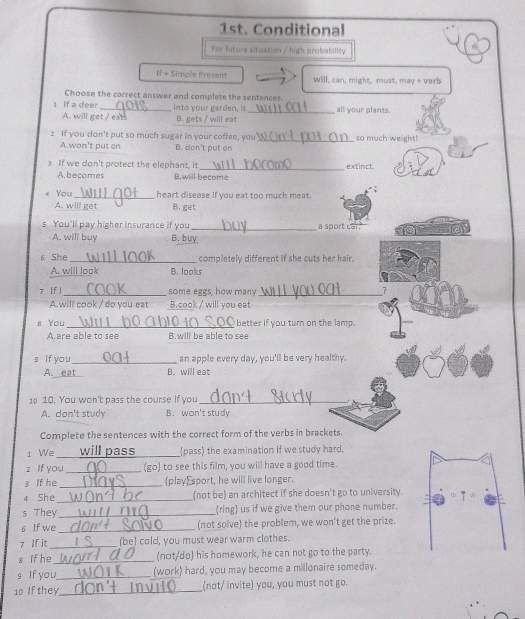 1st. Conditional
For future situation / high probability
If + Simple Present
will, can, might, must, may + verb
Choose the correct answer and complete the sentences.
1 If a deer gets into your garden, it will eat all your plants.
A. will get / eats B. gets / will eat
2 If you don't put so much sugar in your coffee, you won't put on so much weight!
A.won't put on B. don't put on
3 If we don't protect the elephant, it will become extinct.
A.becomes B.will become
4 You will get heart disease if you eat too much meat.
A. will get B. get
5 You'll pay higher insurance if you buy a sport car.
A. will buy B. buy
6 She will look completely different if she cuts her hair.
A. will look B. looks
7 If I cook some eggs, how many will you eat ?
A.will cook / do you eat B.cook / will you eat
8 You will be able to see better if you turn on the lamp.
A.are able to see B.will be able to see
9 If you eat an apple every day, you'll be very healthy.
A. eat B. will eat
10 10. You won't pass the course if you don't study
A. don't study B. won't study
Complete the sentences with the correct form of the verbs in brackets.
1 We will pass (pass) the examination if we study hard.
2 If you go (go) to see this film, you will have a good time.
3 If he plays (play) sport, he will live longer.
4 She won't be (not be) an architect if she doesn't go to university.
5 They will (ring) us if we give them our phone number.
6 If we don't solve (not solve) the problem, we won't get the prize.
7 If it is (be) cold, you must wear warm clothes.
8 If he won't do (not/do) his homework, he can not go to the party.
9 If you work (work) hard, you may become a millonaire someday.
10 If they don't invite (not/ invite) you, you must not go.